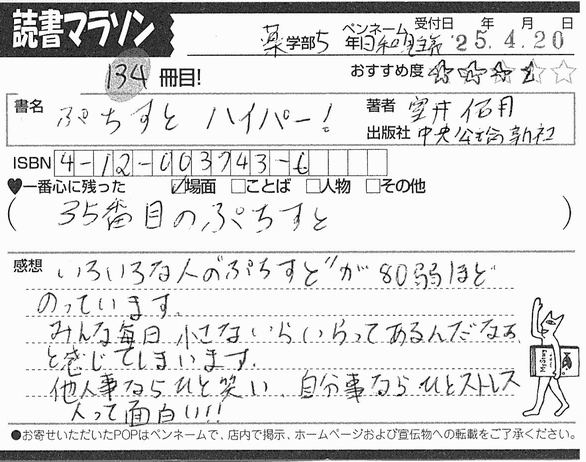 読書マラソン
薬学部5年 ペンネーム 受付日 年 月 日
'25.4.20
134冊目!
おすすめ度
書名 ぷちすと ハイパー!
著者 室井佑月
出版社 中央公論新社
ISBN 4-12-003743-6
♥一番心に残った ☑場面 □ことば □人物 □その他
(35番目のぷちすと)
感想 いろいろな人の"ぷちすと"が80弱ほど
のっています。
みんな毎日小さないらいらってあるんだなぁ
と感じてしまいます。
他人事ならひと笑い 自分事ならひとストレス
入って面白い!!
●お寄せいただいたPOPはペンネームで、店内で掲示、ホームページおよび宣伝物への転載をご了承ください。